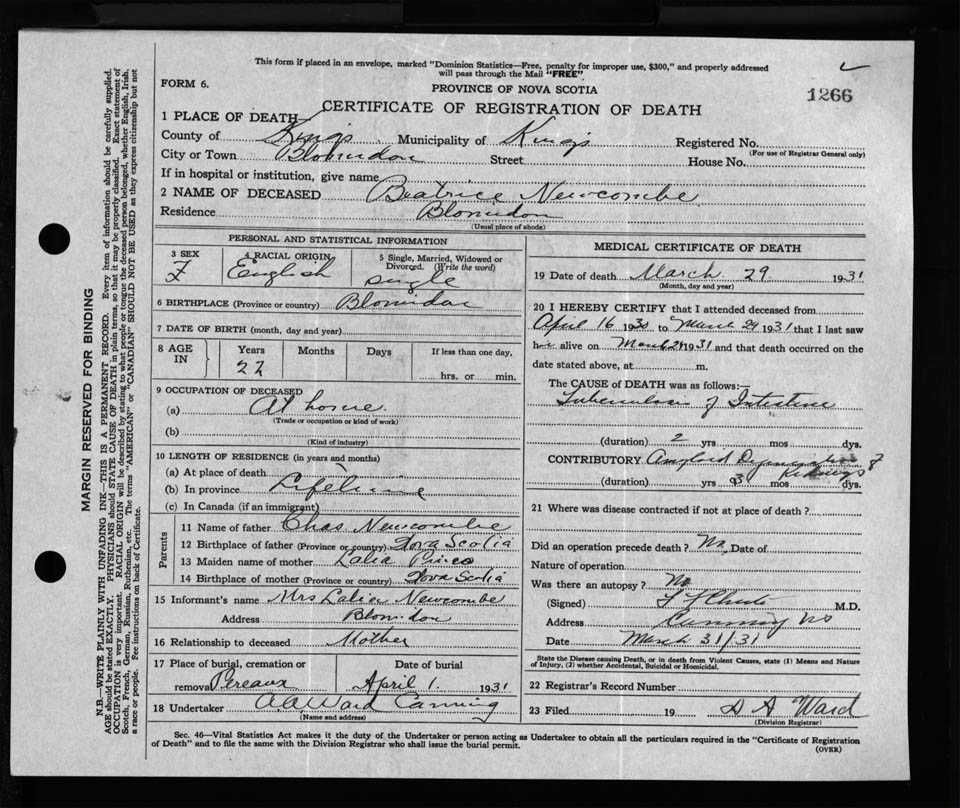 This form if placed in an envelope, marked "Dominion Statistics—Free, penalty for improper use, $300," and properly addressed
will pass through the Mail "FREE".
FORM 6.
PROVINCE OF NOVA SCOTIA
1266
CERTIFICATE OF REGISTRATION OF DEATH
1 PLACE OF DEATH
County of Kings Municipality of Kings Registered No.
(For use of Registrar General only)
City or Town Blomidon Street House No.
If in hospital or institution, give name
2 NAME OF DECEASED Beatrice Newcombe
Residence Blomidon
(Usual place of abode)
PERSONAL AND STATISTICAL INFORMATION
3 SEX 4 RACIAL ORIGIN 5 Single, Married, Widowed or
Divorced. (Write the word)
F English single
6 BIRTHPLACE (Province or country) Blomidon
7 DATE OF BIRTH (month, day and year)
8 AGE IN Years Months Days If less than one day,
hrs. or min.
9 OCCUPATION OF DECEASED
(a) At home.
(Trade or occupation or kind of work)
(b)
(Kind of industry)
10 LENGTH OF RESIDENCE (in years and months)
(a) At place of death
(b) In province Lifetime
(c) In Canada (if an immigrant)
Parents
11 Name of father Chas Newcombe
12 Birthplace of father (Province or country) Nova Scotia
13 Maiden name of mother
14 Birthplace of mother (Province or country) Nova Scotia
15 Informant's name Mrs Newcombe
Address Blomidon
16 Relationship to deceased Mother
17 Place of burial, cremation or Date of burial
removal Pereaux April 1. 1931
18 Undertaker A.A. Ward Canning
(Name and address)
MEDICAL CERTIFICATE OF DEATH
19 Date of death March 29 1931
(Month, day and year)
20 I HEREBY CERTIFY that I attended deceased from
April 16 1930 to March 29 1931 that I last saw
alive on 1931 and that death occurred on the
date stated above, at m.
The CAUSE of DEATH was as follows:—
Tuberculosis of Intestine
(duration) 2 yrs mos dys.
CONTRIBUTORY Kidneys
(duration) yrs mos dys.
21 Where was disease contracted if not at place of death?
Did an operation precede death? No Date of
Nature of operation
Was there an autopsy? No
(Signed) M.D.
Address Canning NS
Date March 31/31
State the Disease causing Death, or in death from Violent Causes, state (1) Means and Nature
of Injury, (2) whether Accidental, Suicidal or Homicidal.
22 Registrar's Record Number
23 Filed 19 D A Ward
(Division Registrar)
Sec. 46—Vital Statistics Act makes it the duty of the Undertaker or person acting as Undertaker to obtain all the particulars required in the "Certificate of Registration
of Death" and to file the same with the Division Registrar who shall issue the burial permit.
(OVER)
MARGIN RESERVED FOR BINDING
N.B.—WRITE PLAINLY WITH UNFADING INK—THIS IS A PERMANENT RECORD. Every item of information should be carefully supplied.
AGE should be stated EXACTLY. PHYSICIANS should STATE CAUSE OF DEATH in plain terms, so that it may be properly classified. Exact statement of
OCCUPATION is very important. RACIAL ORIGIN will be described by stating to what people or tongue the deceased person belonged, whether English, Irish,
Scotch, French, German, Russian, Ruthenian, etc. The terms "AMERICAN" or "CANADIAN" SHOULD NOT BE USED as they express citizenship but not
a race or people. See instructions on back of Certificate.